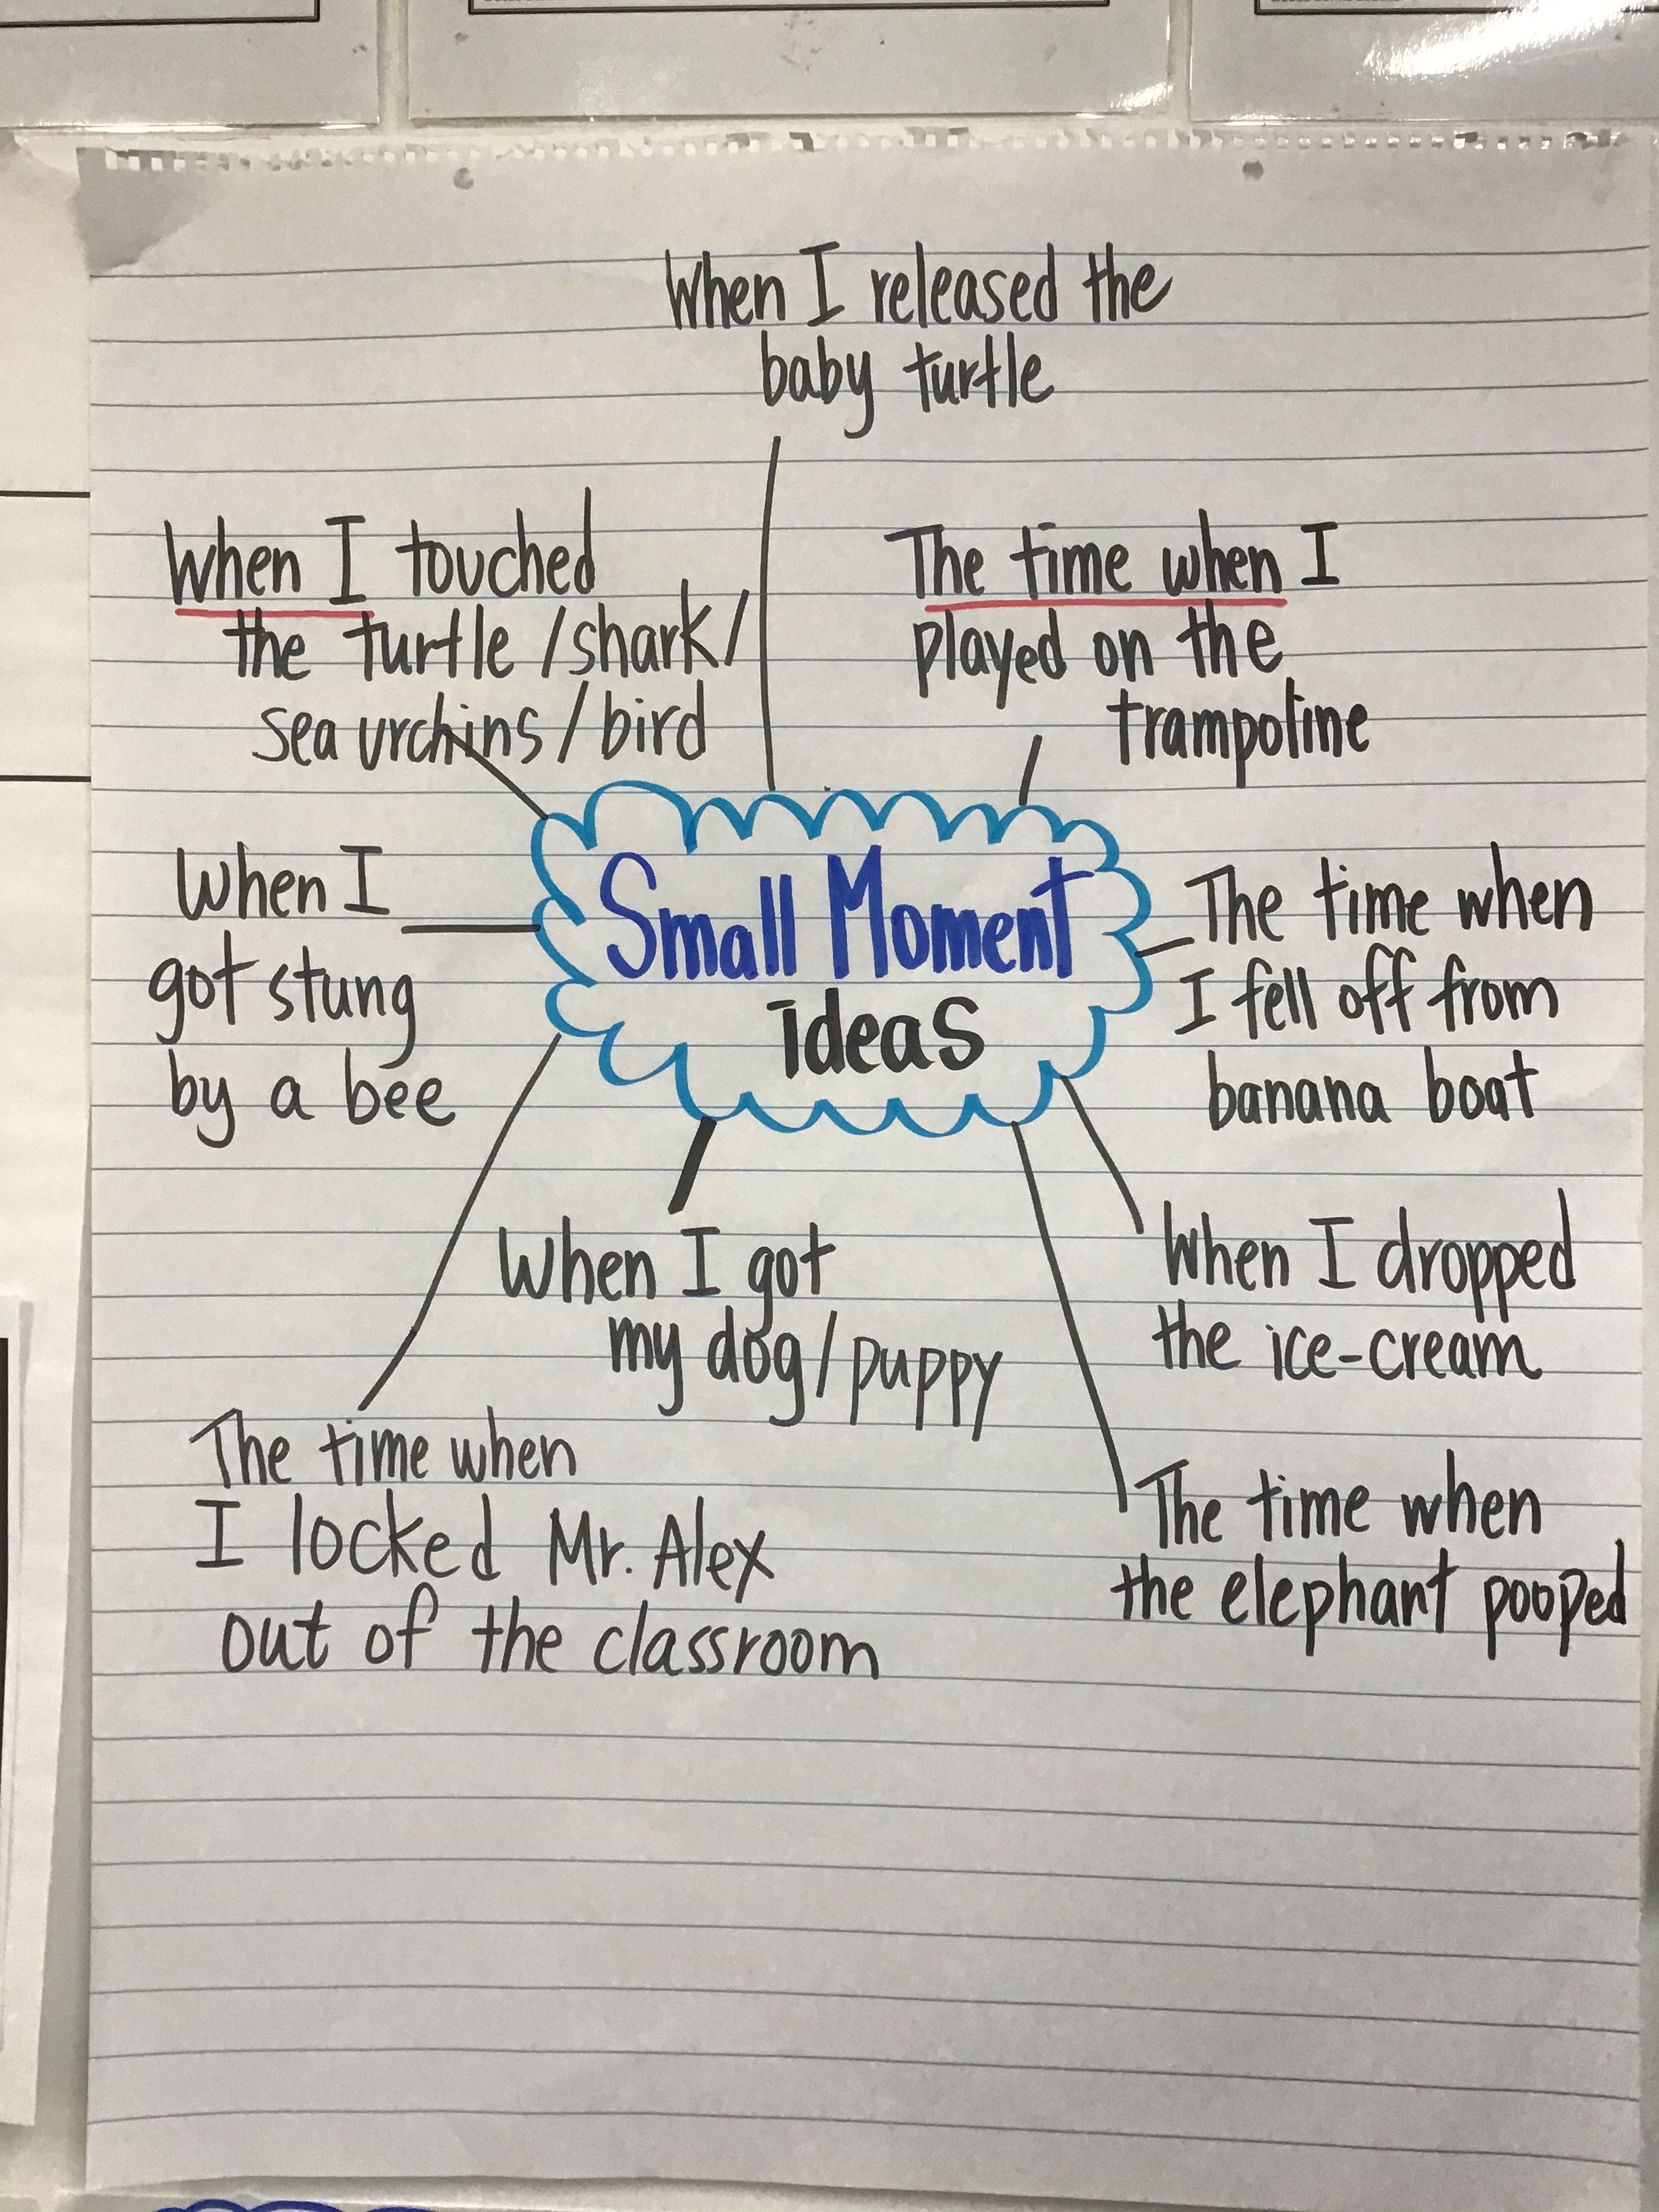 When I released the
baby turtle
When I touched
the turtle /shark/
sea urchins / bird
The time when I
played on the
trampoline
Small Moment
ideas
When I
got stung
by a bee
The time when
I fell off from
banana boat
When I got
my dog/puppy
When I dropped
the ice-cream
The time when
I locked Mr. Alex
out of the classroom
The time when
the elephant pooped